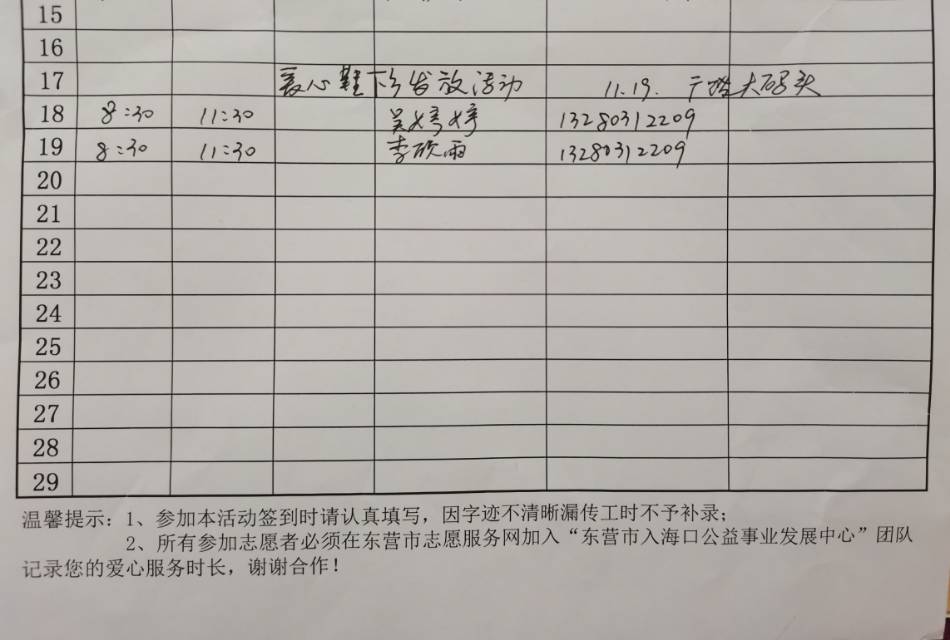 15
16
17 爱心鞋 发放活动 11.19. 大码头
18 8:30 11:30 吴婷婷 13280312209
19 8:30 11:30 李欣雨 13280312209
20
21
22
23
24
25
26
27
28
29
温馨提示：1、参加本活动签到时请认真填写，因字迹不清晰漏传工时不予补录；
2、所有参加志愿者必须在东营市志愿服务网加入“东营市入海口公益事业发展中心”团队
记录您的爱心服务时长，谢谢合作！